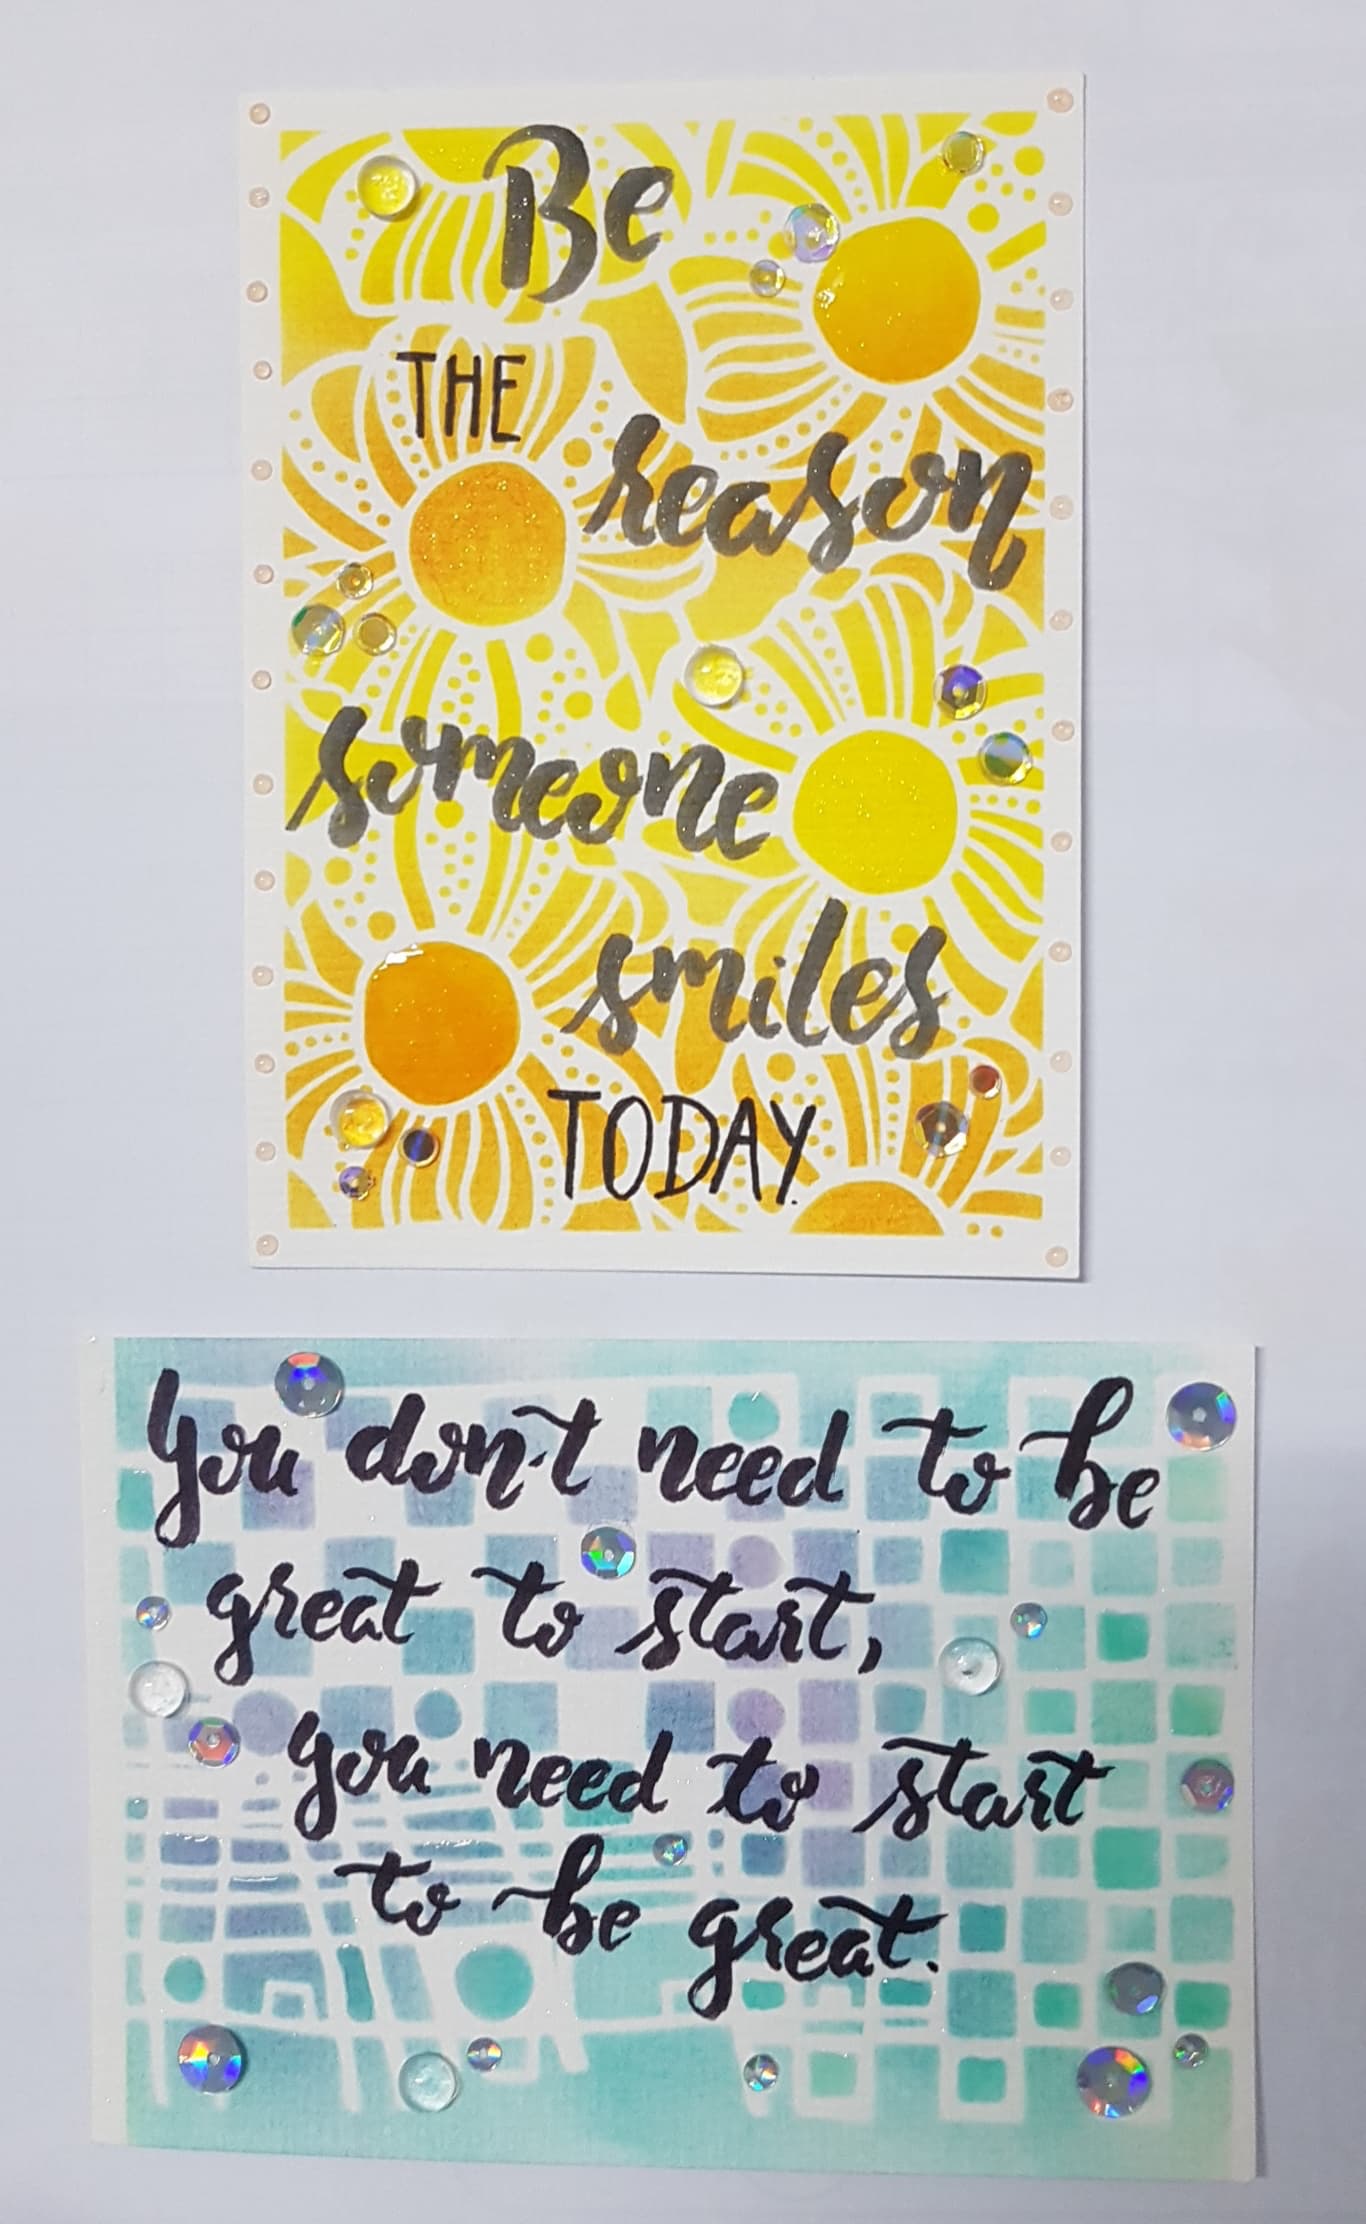 Be
THE
reason
someone
smiles
TODAY.
You don't need to be
great to start,
you need to start
to be great.